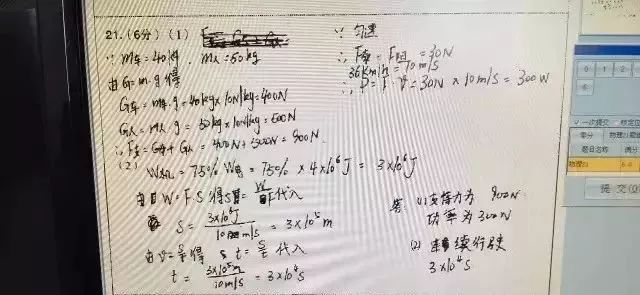 21.(6分)(1)
∵ m车=40kg, m人=50kg
由G=m·g得
G车=m车·g=40kg×10N/kg=400N
G人=m人·g=50kg×10N/kg=500N
∴F支=G车+G人=400N+500N=900N.
(2)
W机=75% W电=75%×4×10⁶J=3×10⁶J
由W=F·S得S=W/F代入
S=3×10⁶J/10m/s=3×10⁵m
由v=s/t得 t=s/t代入
t=3×10⁵m/10m/s=3×10⁴s
∵匀速
∴F牵=F阻=30N
36km/h=10m/s
∴P=F·v=30N×10m/s=300W
答:(1)支持力为900N
功率为300N
(2)续行驶
3×10⁴s
0 1 2
6
一次提交
零分
题目名称 满分
物理21 6.0
提交(Q